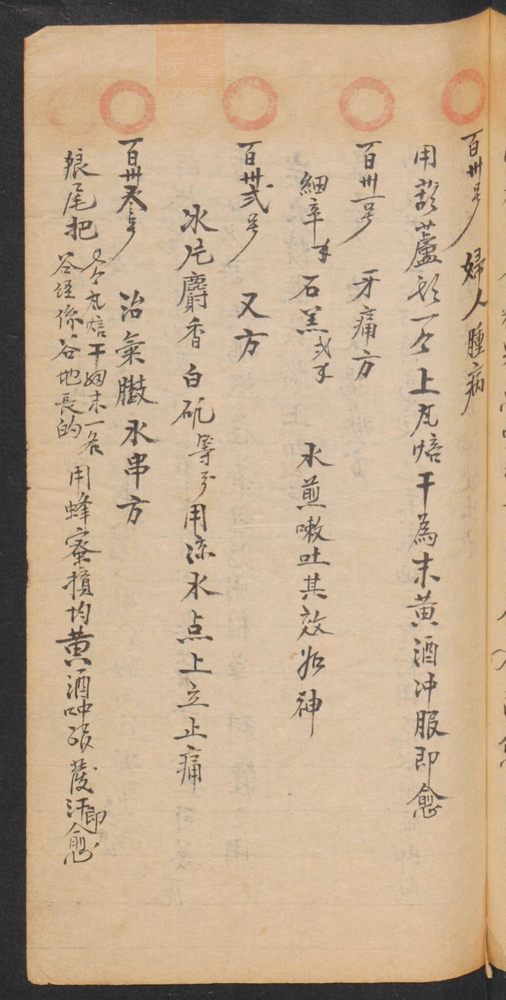 百卅号 婦人腫病
用葫蘆 一个上瓦焙干為末黄酒冲服即愈
百卅一号 牙痛方
細辛 石羔 水煎嗽吐其效如神
百卅弍号 又方
冰片麝香白矾等分用涼水点上立止痛
百卅叁号 治氣臌水串方
狼尾把
瓦焙干細末一名
谷怪係谷地長的
用蜂蜜 均黄酒冲服發汗即愈